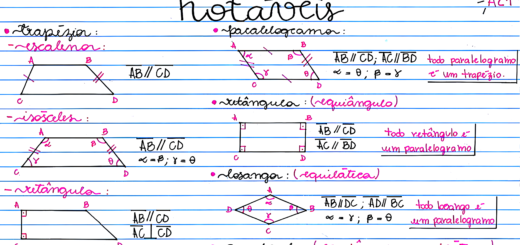 notáveis
• trapézio:
- escaleno:
A B
C D
AB // CD
- isósceles:
A B
α β
γ θ
C D
AB // CD
α = β; γ = θ
- retângulo:
A B
C D
AB // CD
AC ⊥ CD
• paralelogramo:
A B
α β
γ θ
C D
AB // CD; AC // BD
α = θ; β = γ
todo paralelogramo
é um trapézio.
• retângulo: (equiângulo)
A B
C D
AB // CD
AC // BD
todo retângulo é
um paralelogramo
• losango: (equilático)
A
α
D θ β B
γ
C
AB // DC; AD // BC
α = γ; β = θ
todo losango é
um paralelogramo